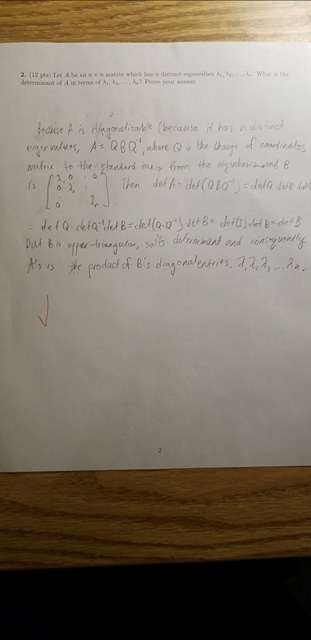 2. (12 pts) Let A be an n × n matrix which has n distinct eigenvalues λ₁, λ₂, . . . , λₙ. What is the
determinant of A in terms of λ₁, λ₂, . . . , λₙ? Prove your answer.
Because A is diagonalizable (because it has n distinct
eigenvalues, A = QBQ⁻¹, where Q is the change of coordinates
matrix to the standard basis from the eigenbasis and B
is [λ₁ 0 ... 0; 0 λ₂ ...; 0 ... λₙ]. Then det A = det(QBQ⁻¹) = det Q det B det
= det Q · det Q⁻¹ det B = det(Q·Q⁻¹) det B = det(I) det B = det B
But B is upper-triangular, so its determinant and consequently
A's is the product of B's diagonal entries, λ₁ λ₂ λ₃ ... λₙ.
2